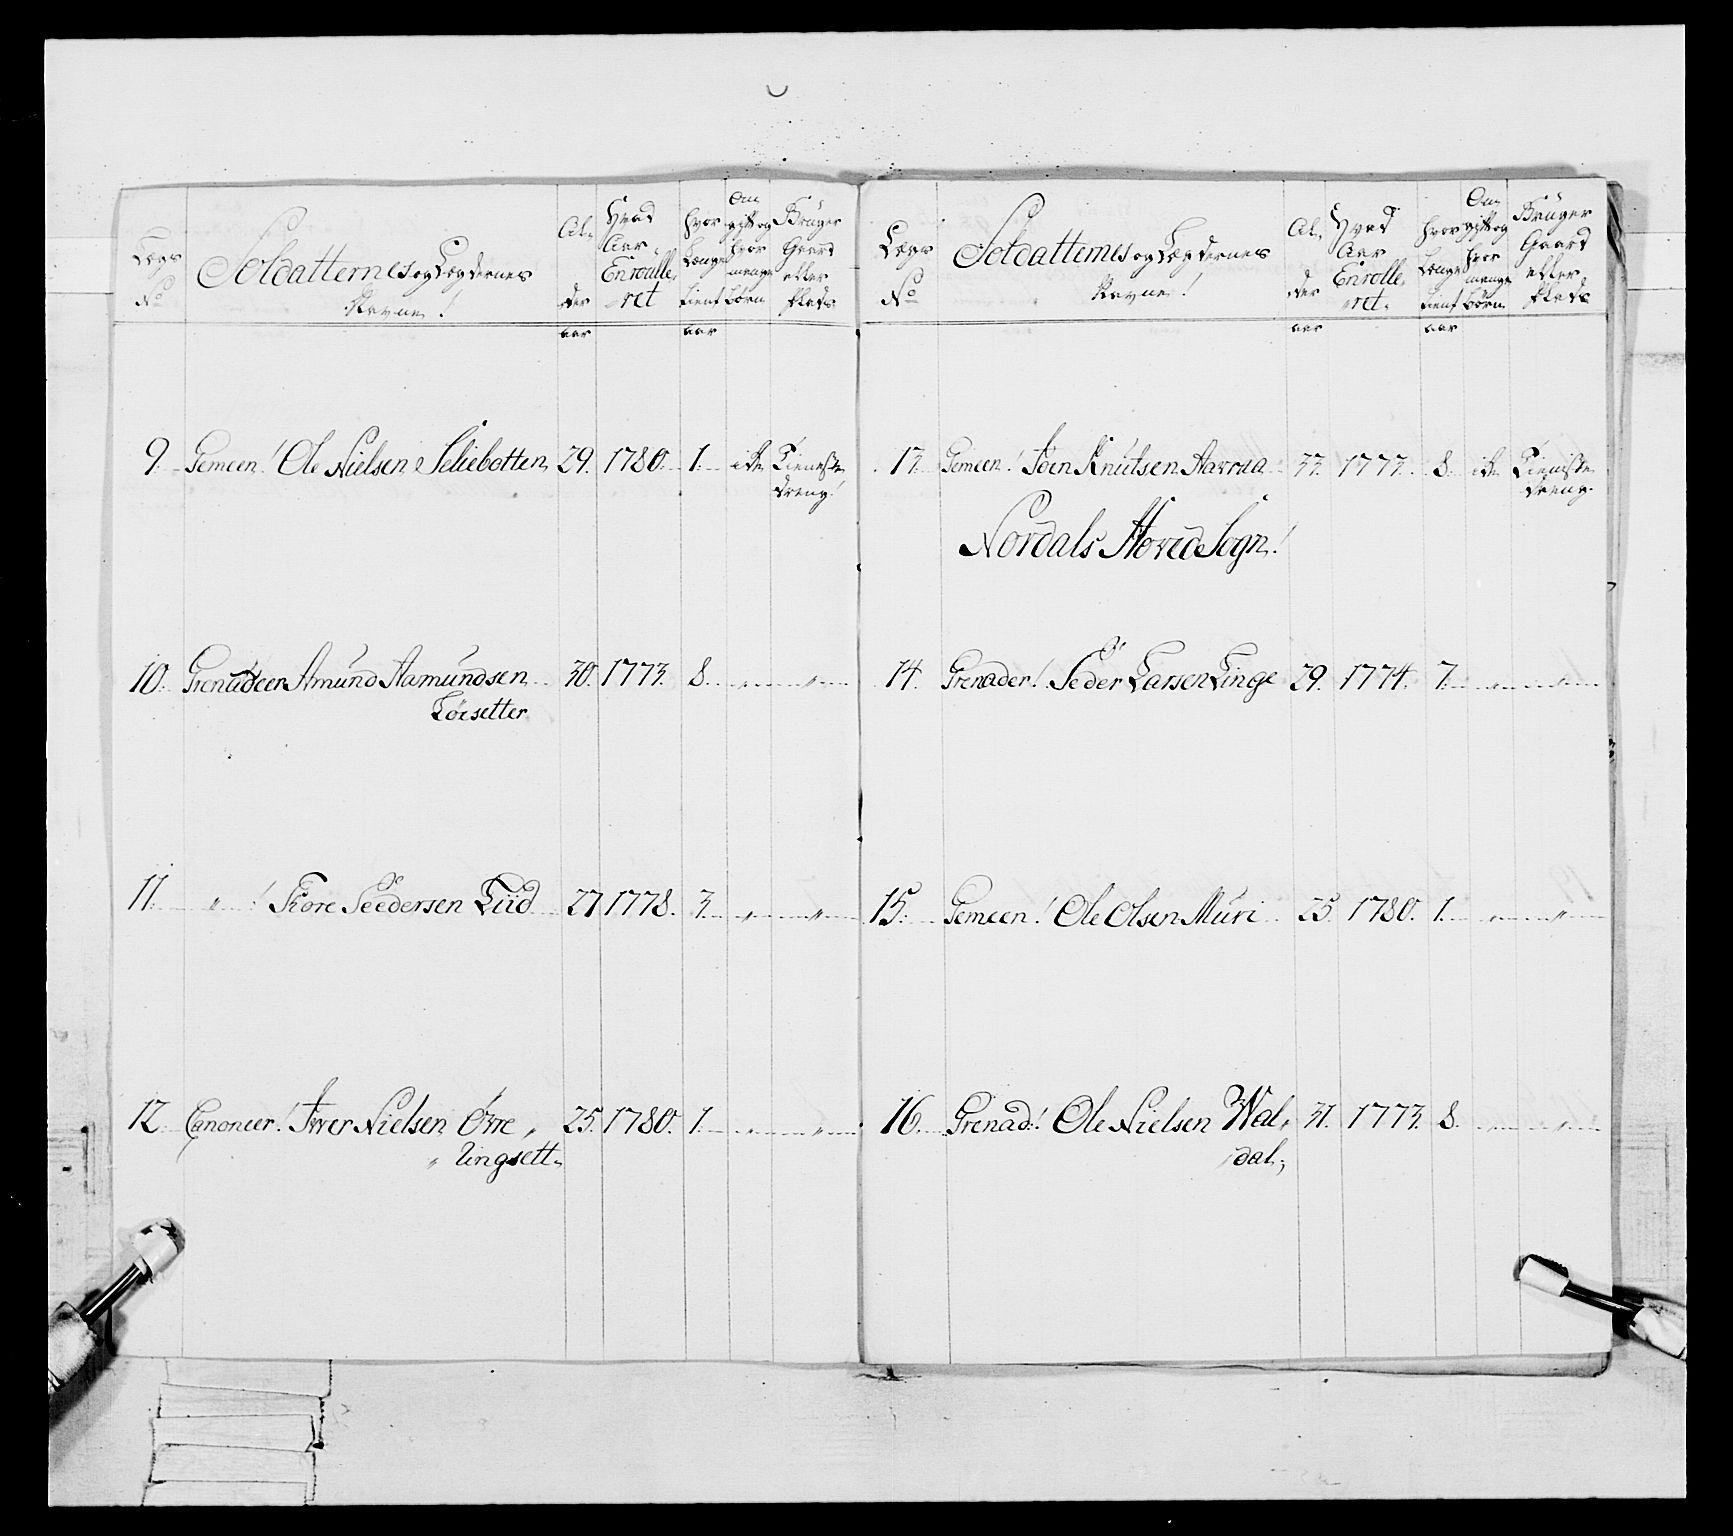 Lægs No
Soldatternes og Lægdernes Navne!
Al-der
Hvad Aar Enroulle-ret
hvor Længe tient
Om gift og hvor mange børn
Bruger Gaard eller Plads
aar aar
9. Gemeen! Ole Nielsen Seliebotten 29. 1780. 1. icke Tieneste
dreng!
10. Grenadeer Amund Aamundsen 30. 1773. 8. " "
Löesetter
11. " ! Tore Peedersen Liid 27 1778. 3. " "
12. Canoneer! Iver Nielsen Övre " 25. 1780. 1. " "
" Ringsett
Lægs No
Soldatternes og Lægdernes Navne!
Al-der
Hvad Aar Enrolle-ret
hvor Længe tient
Om gift og hvor mange børn
Bruger Gaard eller Plads
aar aar
13. Gemeen. Joen Knutsen Aarraa 33. 1773. 8. icke Tieneste
dreng.
Nordals Hoved Sogn!
14. Grenader! Peder Larsen Linge 29. 1774. 7. " "
15. Gemeen! Ole Olsen Muri 25. 1780. 1. " "
16. Grenad! Ole Nielsen Wal- 31. 1773. 8. " "
"dal,